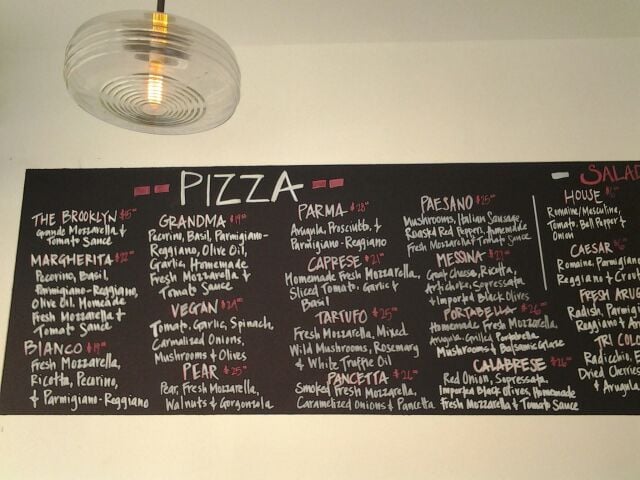 PIZZA
THE BROOKLYN $15
Grande Mozzarella &
Tomato Sauce
MARGHERITA $22
Pecorino, Basil,
Parmigiano-Reggiano,
Olive Oil, Homeade
Fresh Mozzarella &
Tomato Sauce
BIANCO $19
Fresh Mozzarella,
Ricotta, Pecorino,
& Parmigiano-Reggiano
GRANDMA $19
Pecorino, Basil, Parmigiano-
Reggiano, Olive Oil,
Garlic, Homemade
Fresh Mozzarella &
Tomato Sauce
VEGAN $24
Tomato, Garlic, Spinach,
Carmalized Onions,
Mushrooms & Olives
PEAR $25
Pear, Fresh Mozzarella,
Walnuts & Gorgonzola
PARMA $28
Arugula, Prosciutto, &
Parmigiano-Reggiano
CAPRESE $21
Homemade Fresh Mozzarella,
Sliced Tomato, Garlic &
Basil
TARTUFO $25
Fresh Mozzarella, Mixed
Wild Mushrooms, Rosemary
& White Truffle Oil
PANCETTA $26
Smoked Fresh Mozzarella,
Caramelized Onions & Pancetta
PAESANO $25
Mushrooms, Italian Sausage,
Roasted Red Peppers, Homemade
Fresh Mozzarella & Tomato Sauce
MESSINA $27
Goat Cheese, Ricotta,
Artichoke, Sopressata
& Imported Black Olives
PORTABELLA $26
Homemade Fresh Mozzarella,
Arugula, Grilled Portobello
Mushrooms & Balsamic Glaze
CALABRESE $26
Red Onion, Sopressata,
Imported Black Olives, Homemade
Fresh Mozzarella & Tomato Sauce
SALAD
HOUSE $6
Romaine/Masculine,
Tomato, Bell Pepper &
Onion
CAESAR $6
Romaine, Parmigiano
Reggiano & Crou
FRESH ARUGU
Radish, Parmigi
Reggiano &
TRI COLO
Radicchio,
Dried Cherries
& Arugula